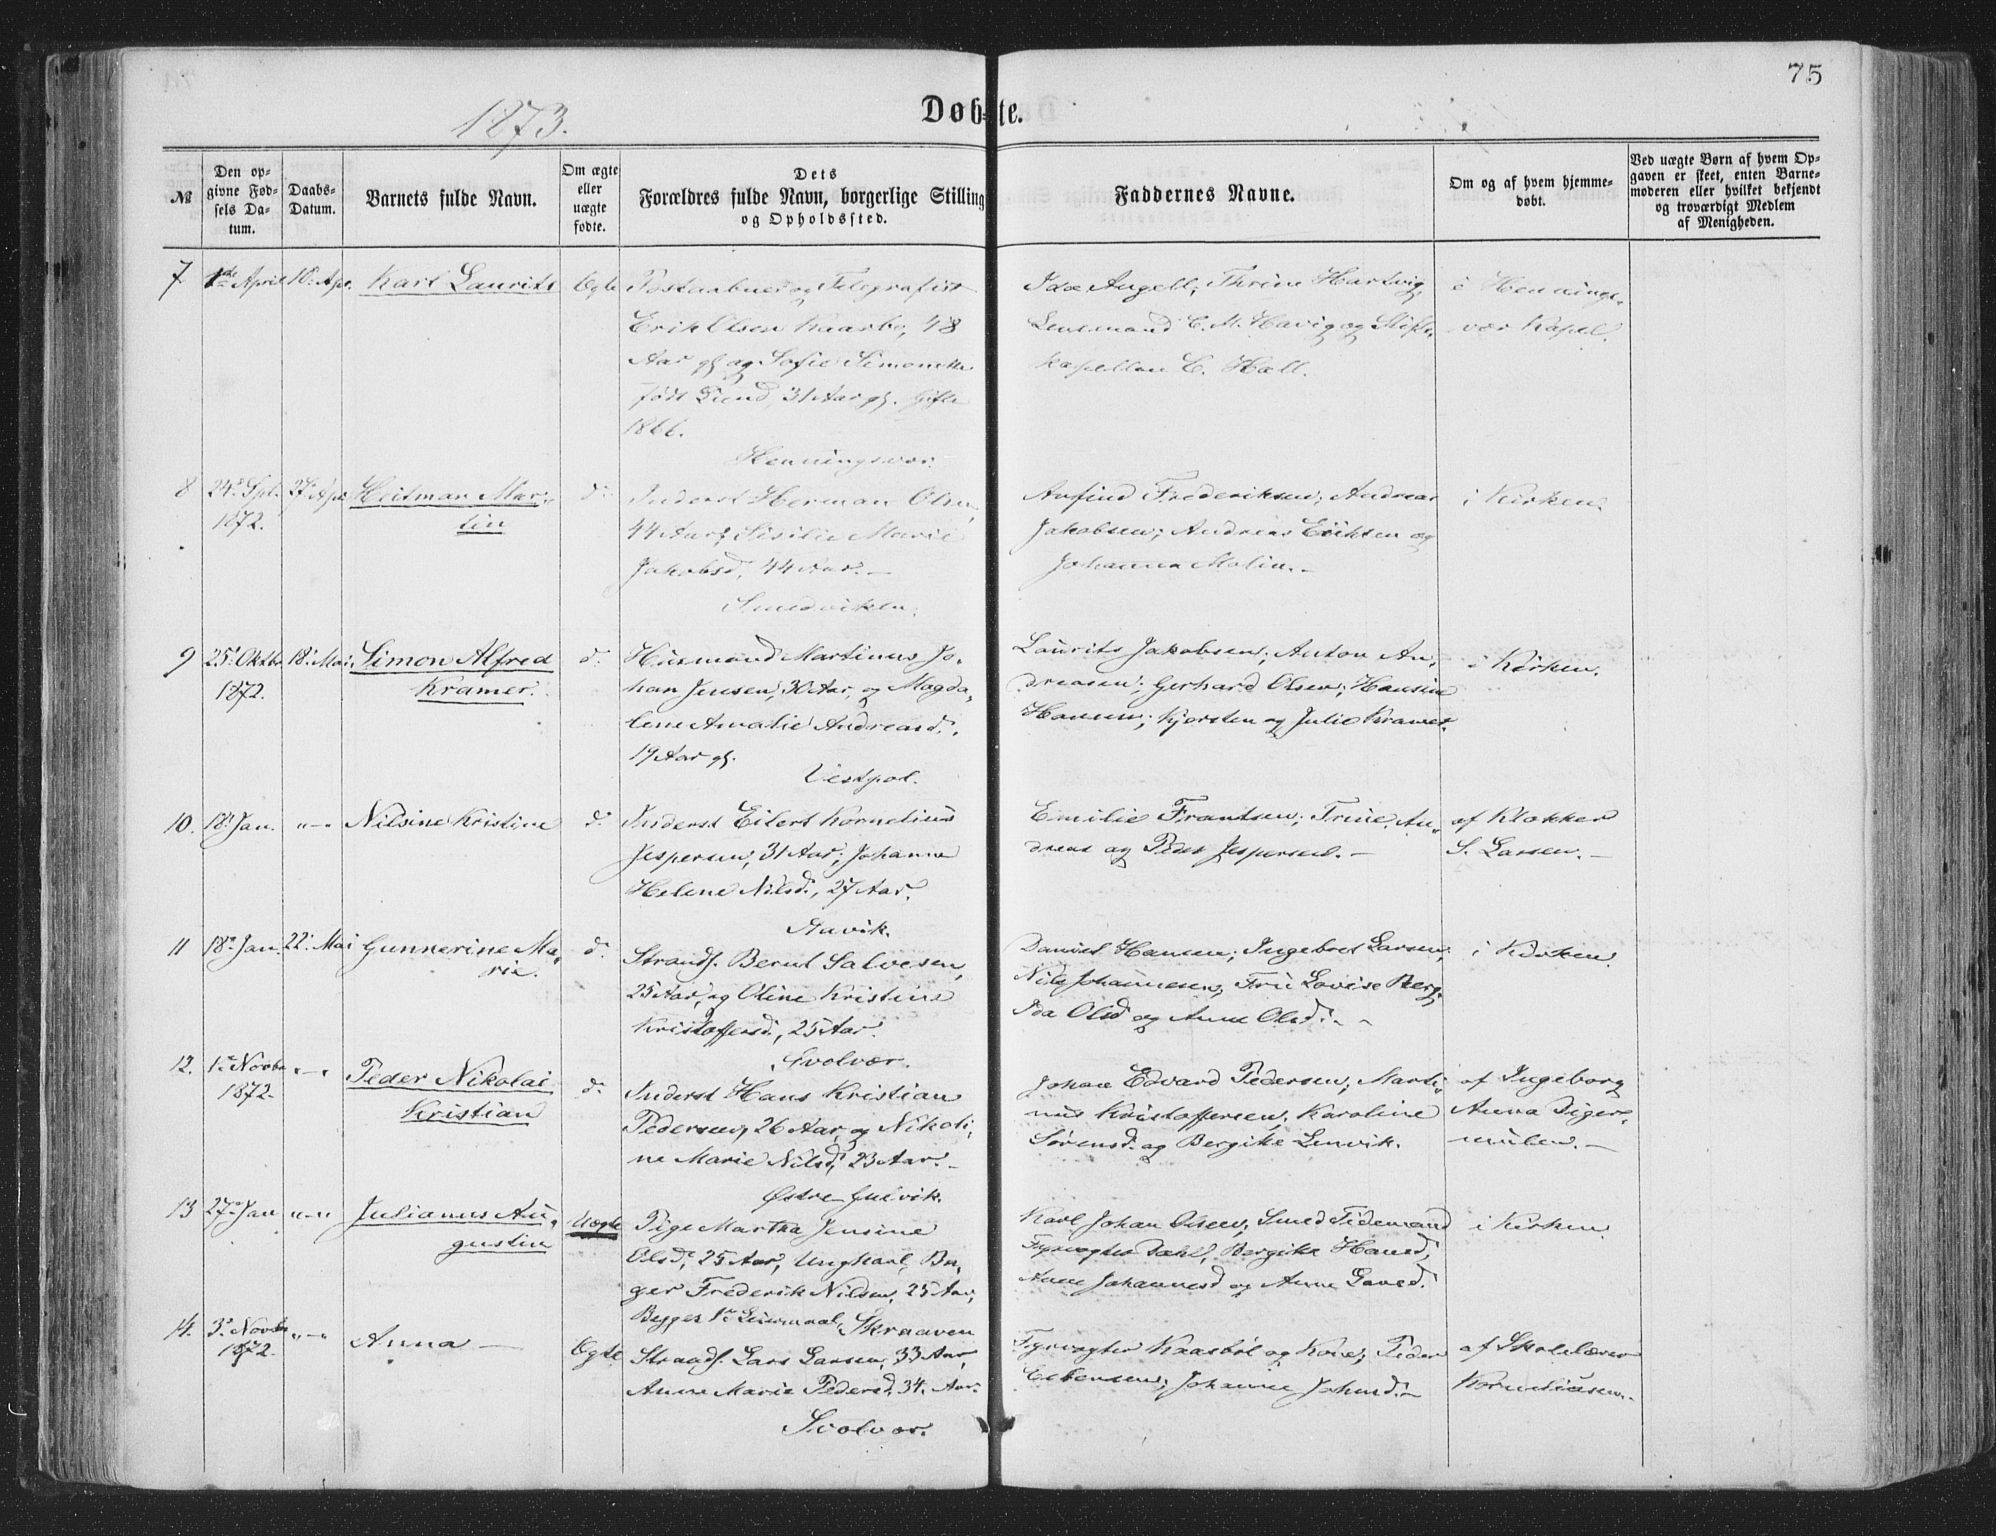 75
1873.
Døbte.
№
Den opgivne Fødsels Datum.
Daabs-Datum.
Barnets fulde Navn.
Om ægte eller uægte fødte.
Dets Forældres fulde Navn, borgerlige Stilling og Opholdssted.
Faddernes Navne.
Om og af hvem hjemmedøbt.
Ved uægte Børn af hvem Opgaven er skeet, enten Barnemoderen eller hvilket bekjendt og troværdigt Medlem af Menigheden.
7 1ste April 10. Apr. Karl Laurits Ægte
Postaabner og Telegrafist
Erik Olsen Kaarbø, 48
Aar gl. og Sofie Simonette
født Lund, 31 Aar gl. Gifte
1866.
Henningsvær.
Ida Angell, Thrine Hartvig,
Lensmand C. M. Havig og Stifts-
kapellan C. Hall.
i Hennings-
vær Kapel.
8 24. Spt. 1872. 27. Apr. Heitman Mar-
tin d.
Inderst Herman Olsen,
44 Aar, Sisilie Marie
Jakobsd., 44 Aar. —
Smedviken.
Arfind Frederiksen; Andreas
Jakobsen; Andreas Eriksen og
Johanna Malin. -
i Kirken.
9 25. Oktbr. 1872. 18. Mai. Simon Alfred
Kramer. d.
Husmand Martinus Jo-
han Jensen, 30 Aar, og Magda-
lene Amalie Andreasd.,
19 Aar gl.
Vestpol.
Laurits Jakobsen; Anton An-
dreasen; Gerhard Olsen; Hansine
Hansen; Kjersten og Julie Kramer.
i Kirken.
10. 18. Jan. "—" Nilsine Kristine d.
Inderst Eilert Kornelius
Jespersen, 31 Aar; Johanna
Helene Nilsd., 27 Aar.
Gavik.
Emilie Frantsen; Trine An-
dreas og Peder Jespersen. —
af Klokker
S. Larsen. —
11 18. Jan. 22. Mai Gunnerine Ma-
rie. d.
Strands. Bernt Salvesen,
25 Aar, og Oline Kristine
Kristoffersd., 25 Aar.
Svolvær.
Daniel Hansen; Ingebret Larsen;
Nils Johannesen, Fru Lovise Berg,
Ida Olsd og Anne Olsd. - -
i Kirken.
12. 1. Novbr. 1872. "—" Peder Nikolai
Kristian d.
Inderst Hans Kristian
Pedersen, 26 Aar, og Nikoli-
ne Marie Nilsd., 23 Aar. —
Østre Gulvik.
Johan Edvard Pedersen; Marti-
nus Kristoffersen; Karoline
Sørensd. og Bergithe Lenvik.
af Ingeborg
Anna Diger-
mulen. —
13 27. Jan "—" Julianus Au-
gustin Uægte
Pige Martha Jensine
Olsd., 25 Aar, Ungkarl, Bu-
ger Frederik Nilsen, 25 Aar,
Begges 1ste Leiermaal, Skraaven
Karl Johan Olsen, Smed Tidemand
Fyrvogter Dahl, Bergithe Hansd.,
Anne Johannesd og Anne Larsd.
i Kirken.
14. 3. Novbr. 1872. "—" Anna — Ægte
Strands. Lars Larsen, 33 Aar,
Anne Marie Pedersd, 34 Aar.
Svolvær.
Fyrvogter Kaasbøl og Kone; Peder
Esbensen; Johanne Johnsd. —
af Skolelærer
Korneliusen.